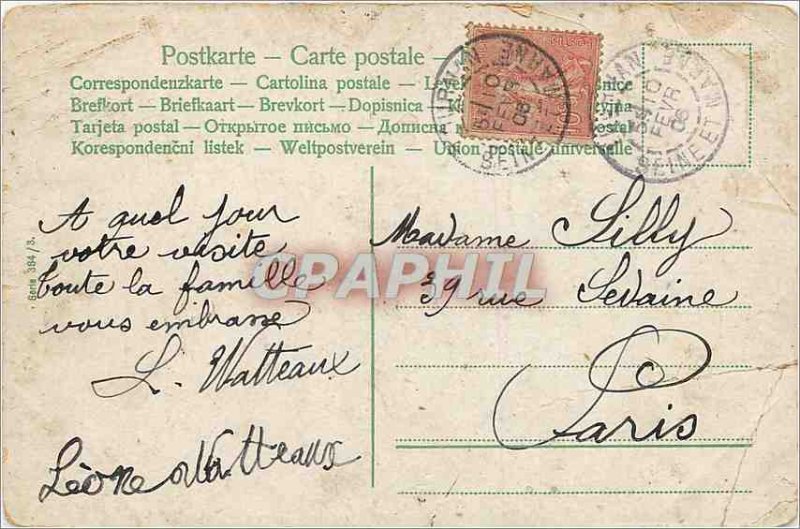 Postkarte – Carte postale –
Correspondenzkarte – Cartolina postale –
Brefkort – Briefkaart – Brevkort – Dopisnica
Tarjeta postal – Открытое письмо –
Korespondenční listek – Weltpostverein – Union postale universelle
FEVR
06
SEINE ET MARNE
A quel jour
votre visite
toute la famille
vous embrasse
L. Watteaux
Léone Watteaux
Serie 384/3.
CPAPHIL
Madame Silly
39 rue Sedaine
Paris